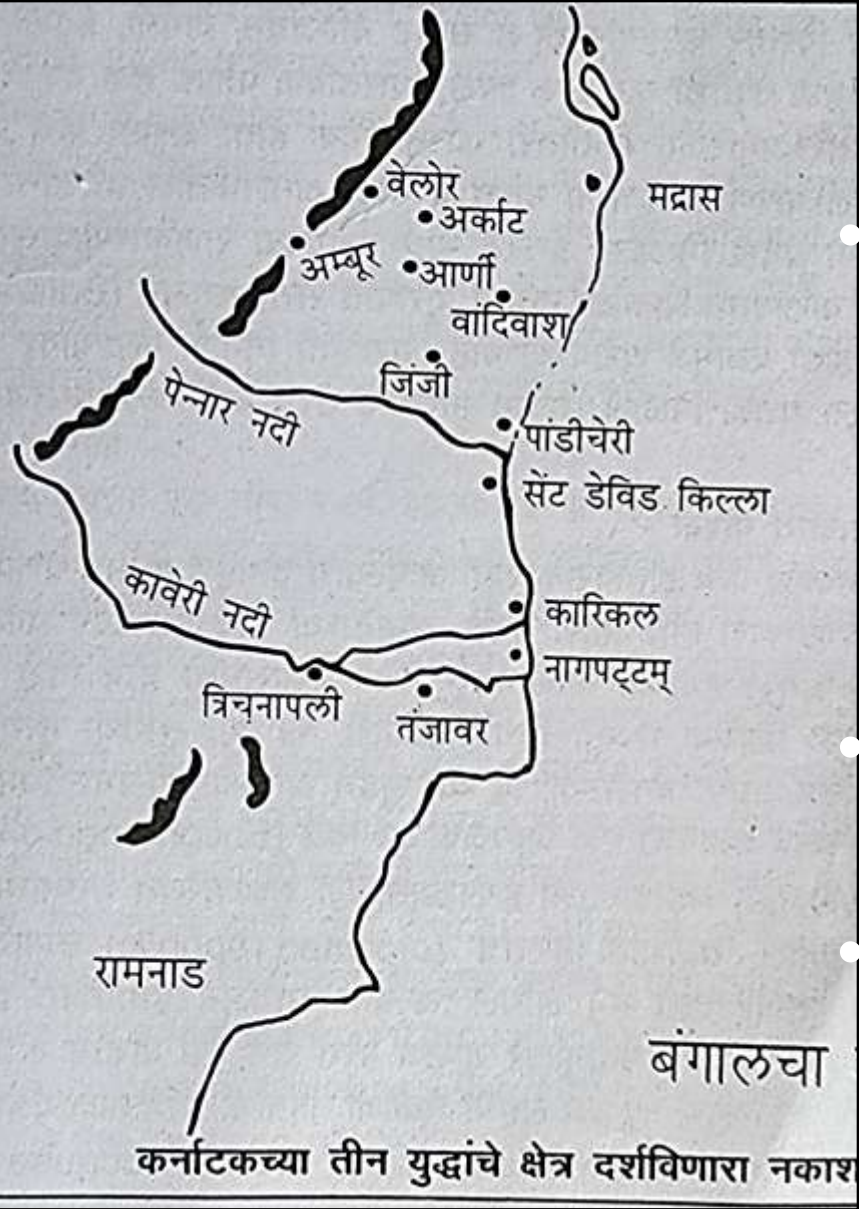 वेलोर
मद्रास
अर्काट
अम्बूर
आर्णी
वांदिवाश
जिंजी
पेन्नार नदी
पांडीचेरी
सेंट डेविड किल्ला
कावेरी नदी
कारिकल
नागपट्टम्
त्रिचनापली
तंजावर
रामनाड
बंगालचा
कर्नाटकच्या तीन युद्धांचे क्षेत्र दर्शविणारा